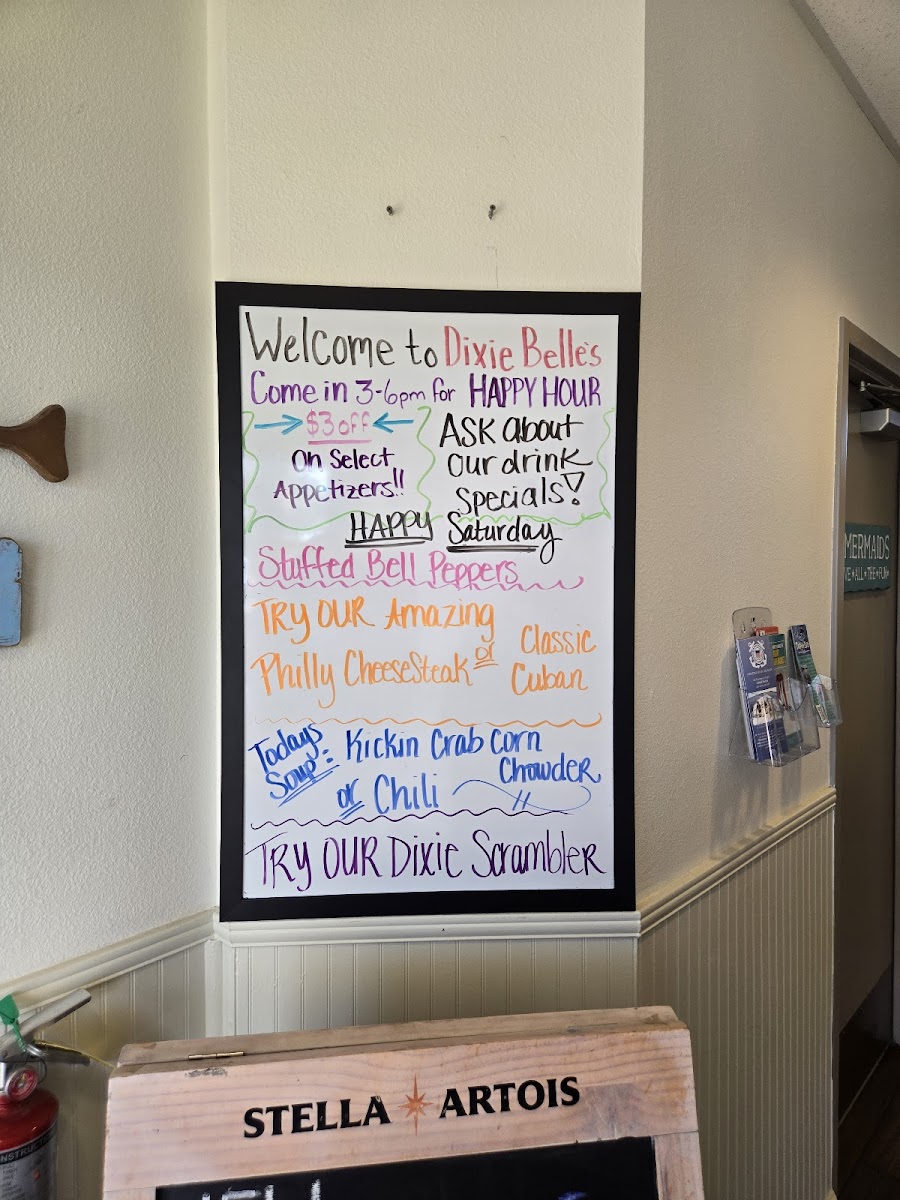 Welcome to Dixie Belle's
Come in 3-6pm for HAPPY HOUR
$3 off
On Select
Appetizers!!
ASK about
our drink
specials!
HAPPY Saturday
Stuffed Bell Peppers
TRY OUR Amazing
Philly CheeseSteak or Classic
Cuban
Todays
Soup:
Kickin Crab Corn
Chowder
or Chili
TRY OUR Dixie Scrambler
MERMAIDS
STELLA ARTOIS